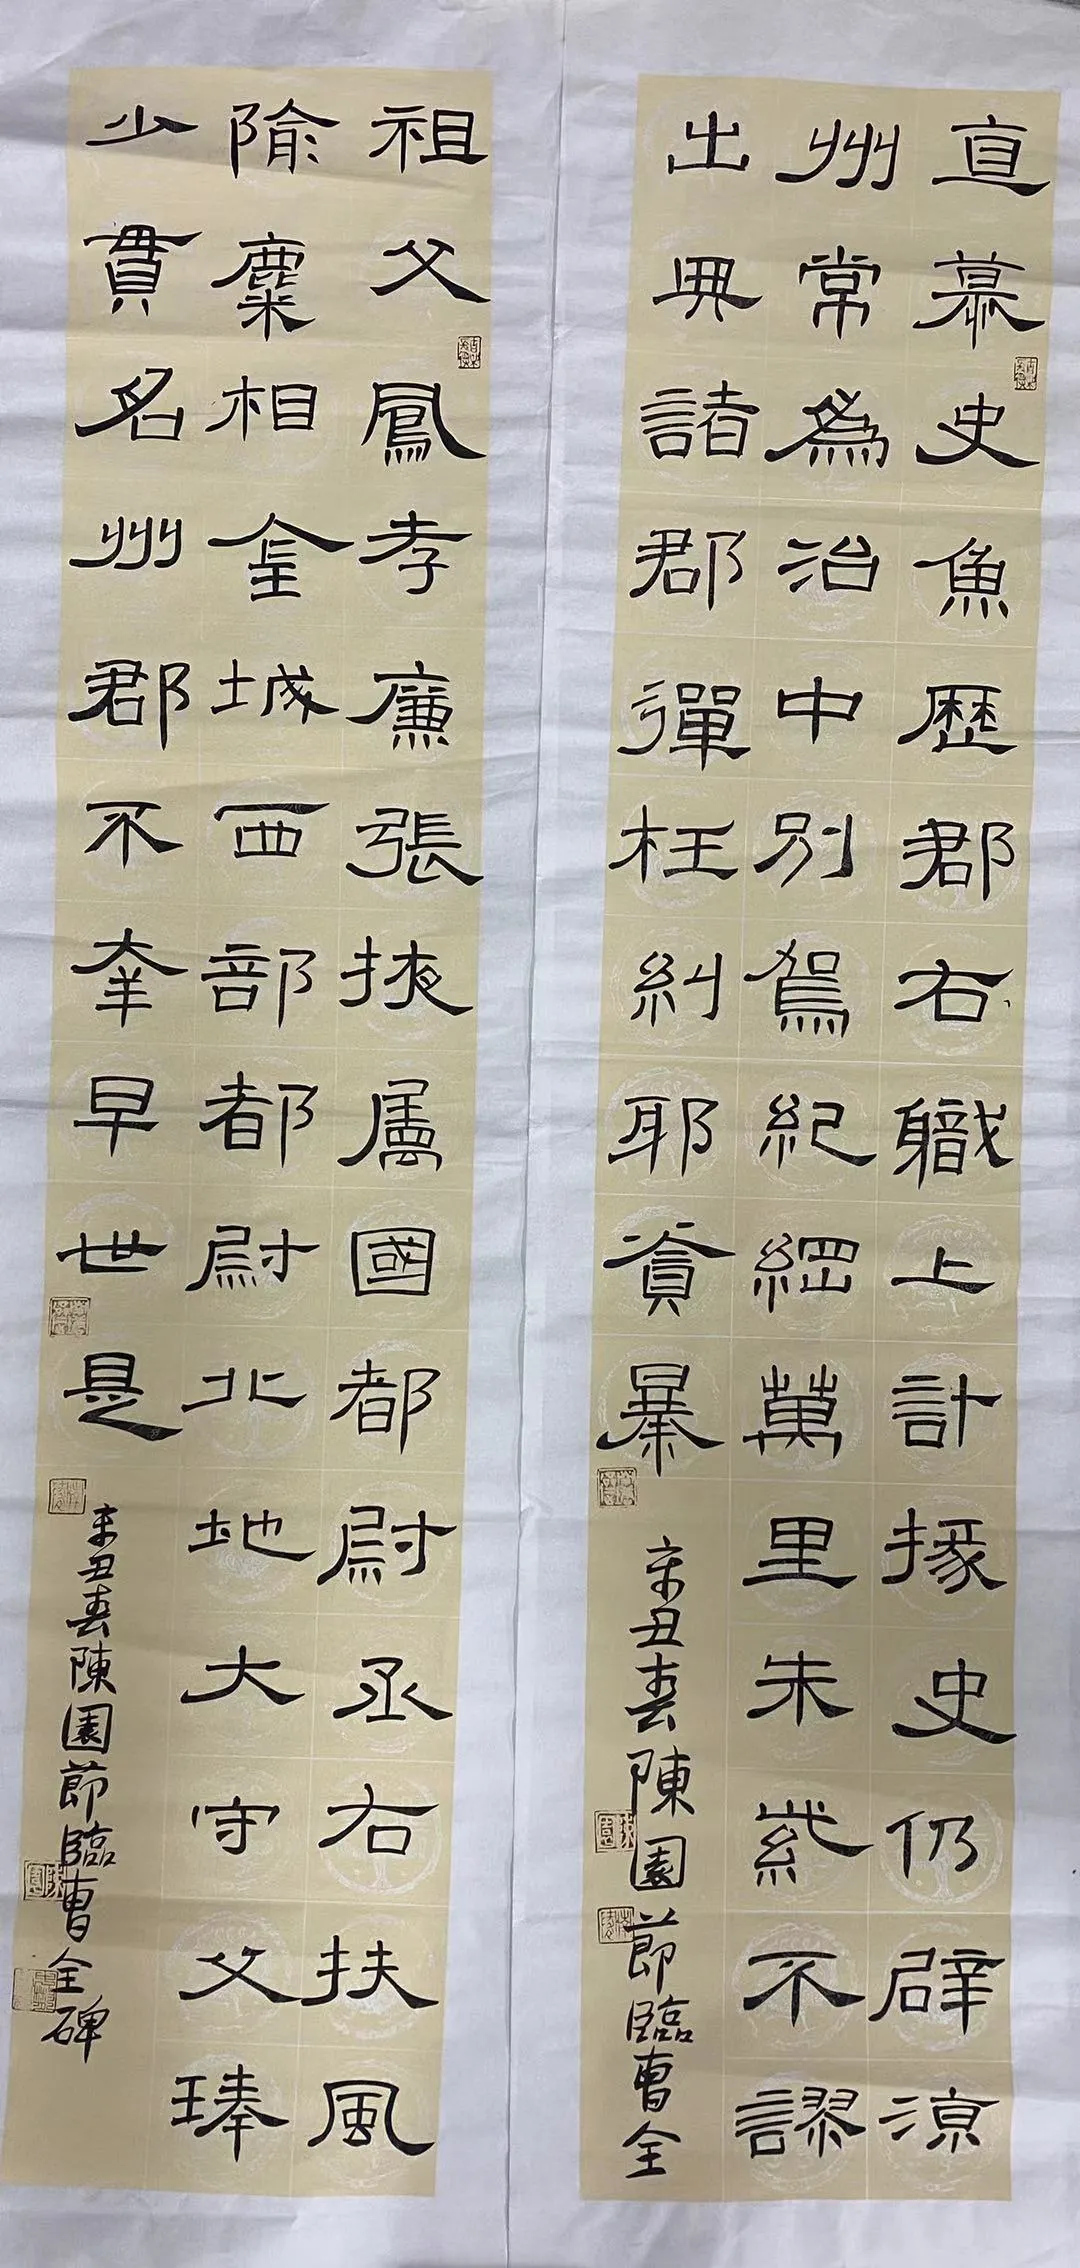 直慕史魚歷郡右職上計掾史仍辟涼
州常為治中別駕紀綱萬里朱紫不謬
出典諸郡彈枉糾耶貪暴
辛丑春陳園節臨曹全
祖父鳳孝廉張掖屬國都尉丞右扶風
隃麋相金城西部都尉北地大守父琫
少貫名州郡不幸早世是
辛丑春陳園節臨曹全碑